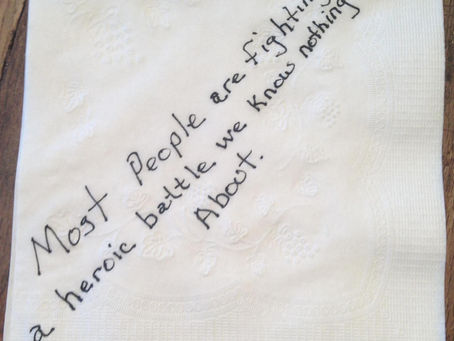 Most People are fighting
a heroic battle we know nothing
About.